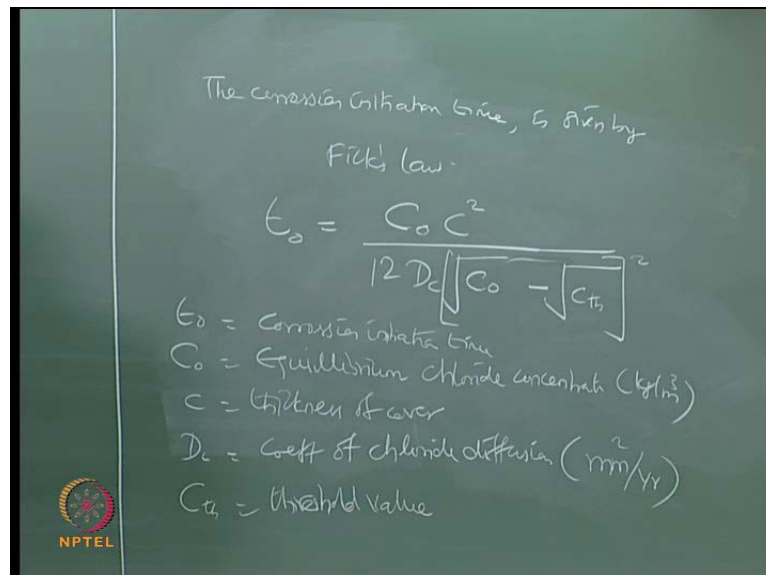 The corrossion initiation time, is given by
Fick's law.
t₀ = C₀ c² / 12 D_c [√C₀ - √C_th]²
t₀ = Corrossion initiation time
C₀ = Equillibrium chloride concentrate (kg/m³)
c = thickness of cover
D_c = Coeff of chloride diffusion (mm²/yr)
C_th = threshold value
NPTEL